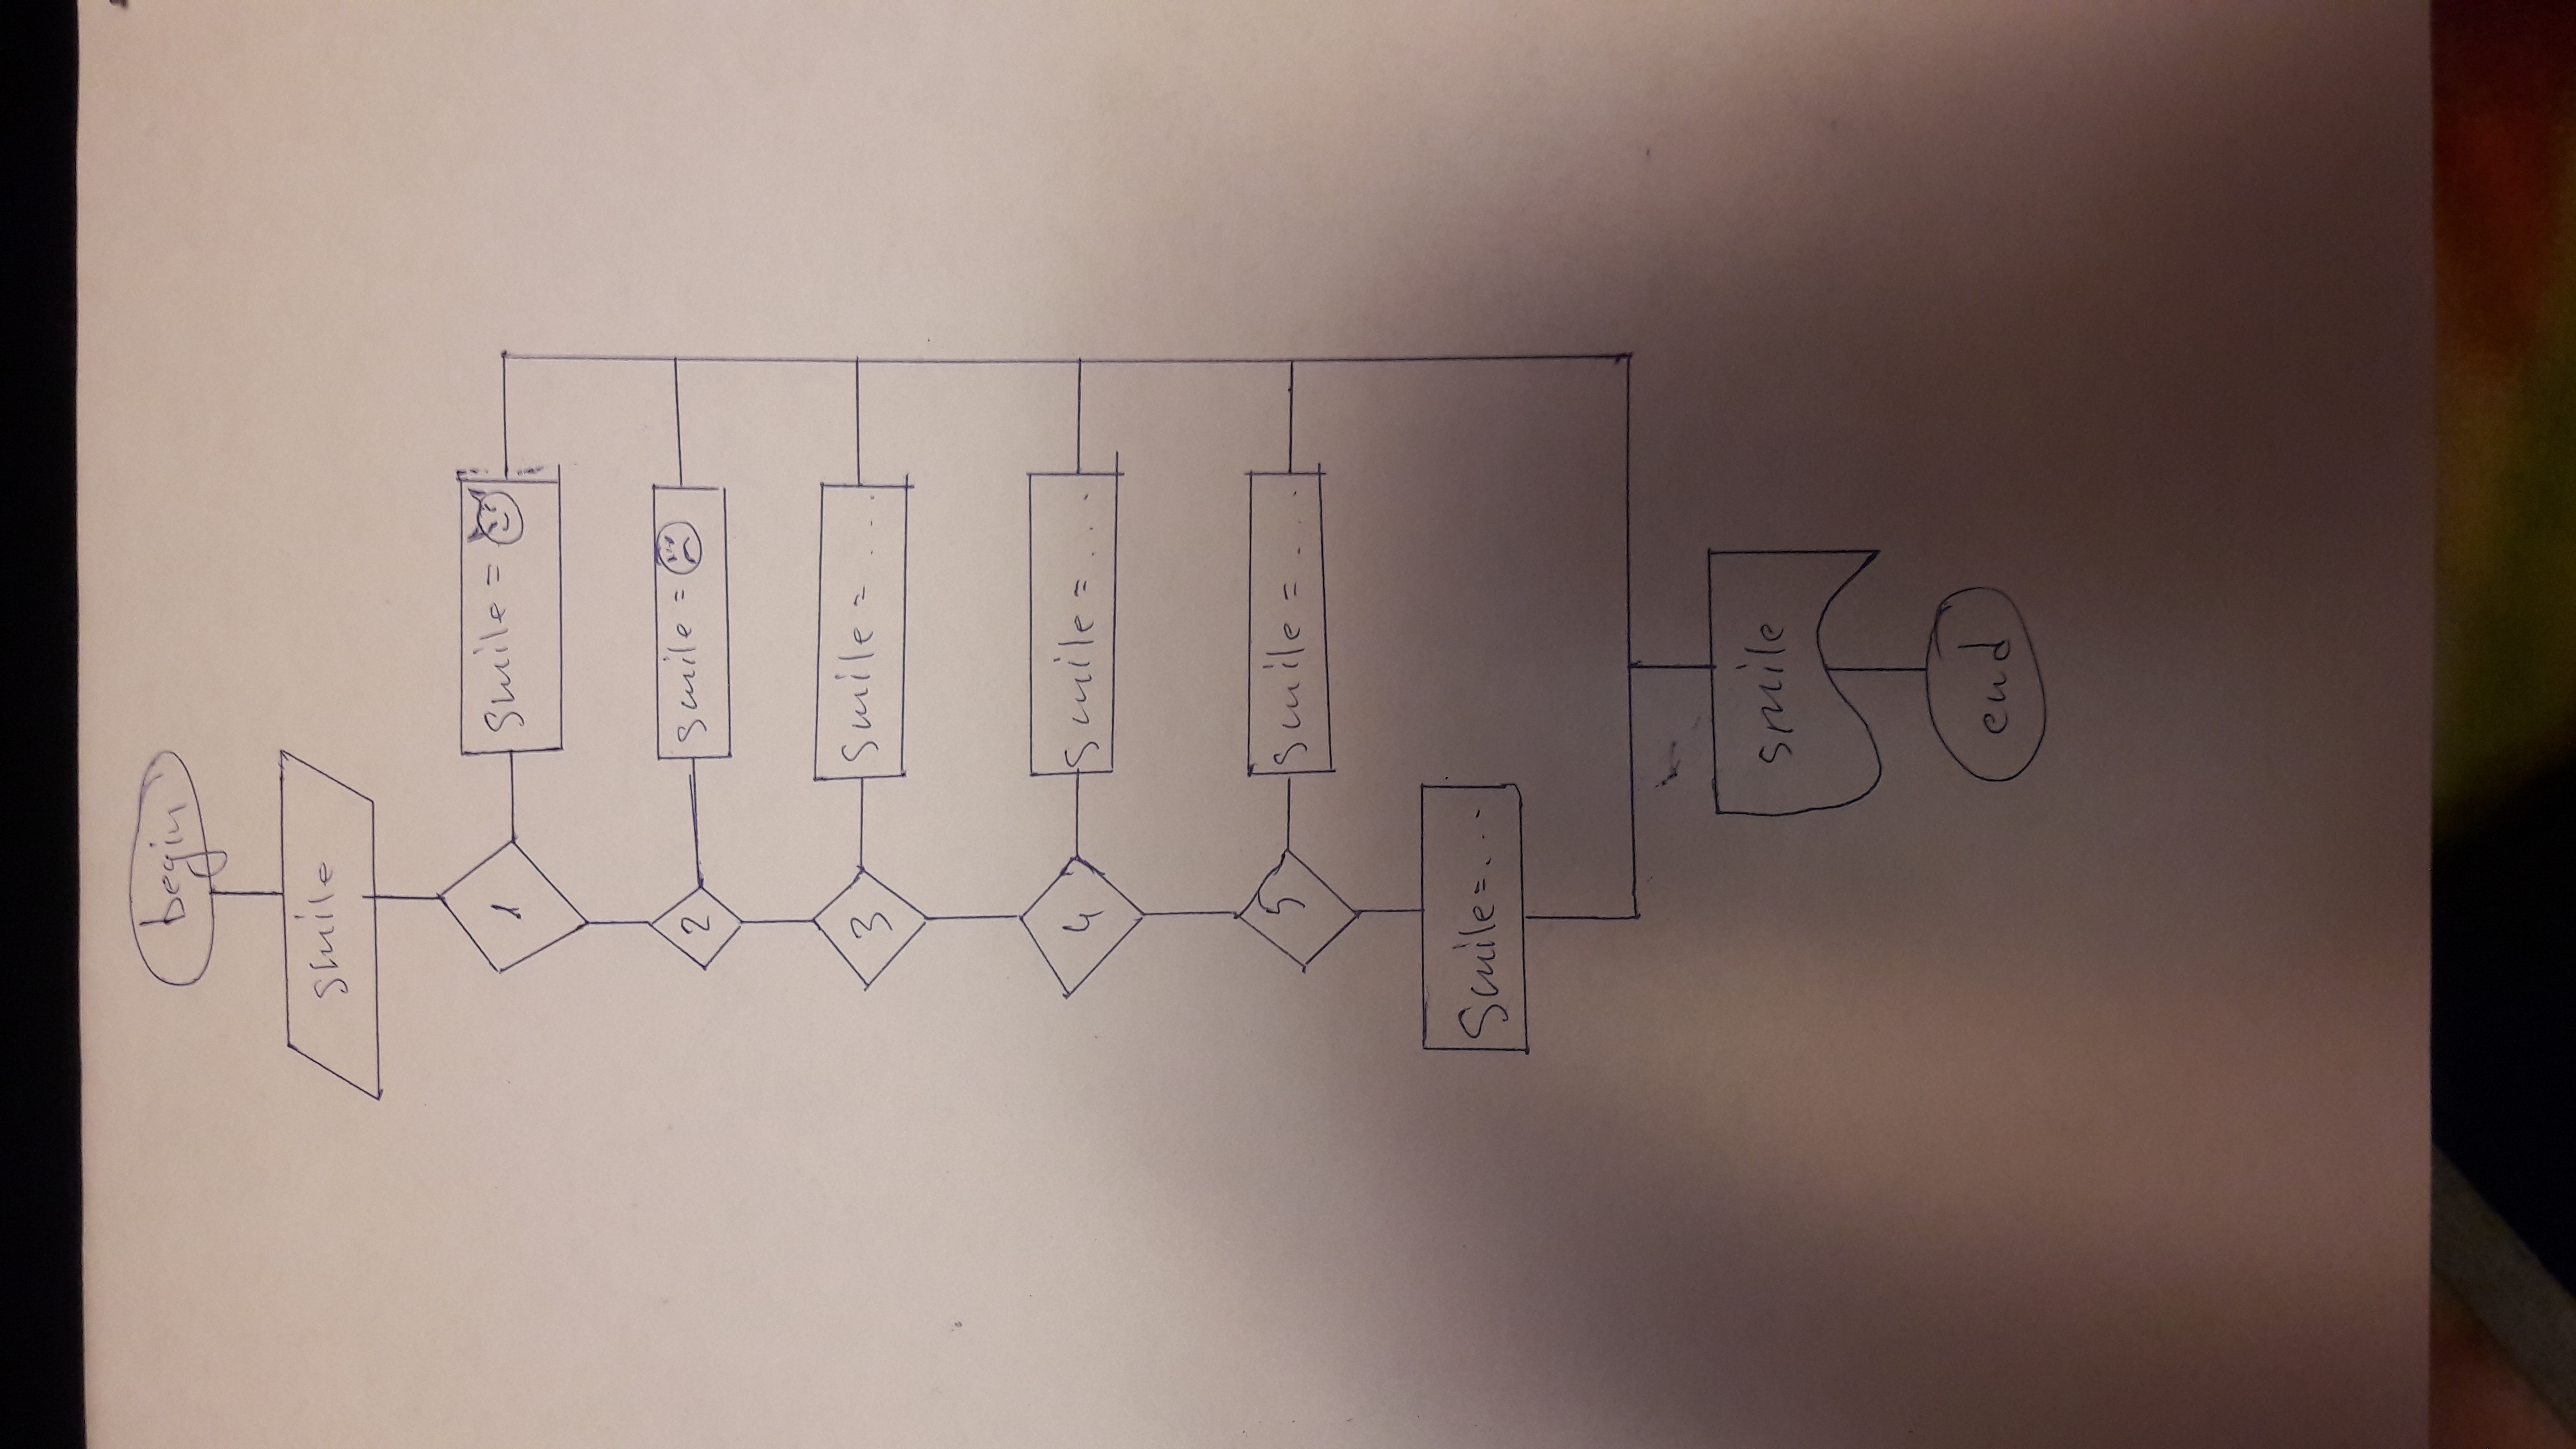 begin
smile
1
smile =
2
smile =
3
smile = ...
4
smile = ...
5
smile = ...
Smile = ...
smile
end